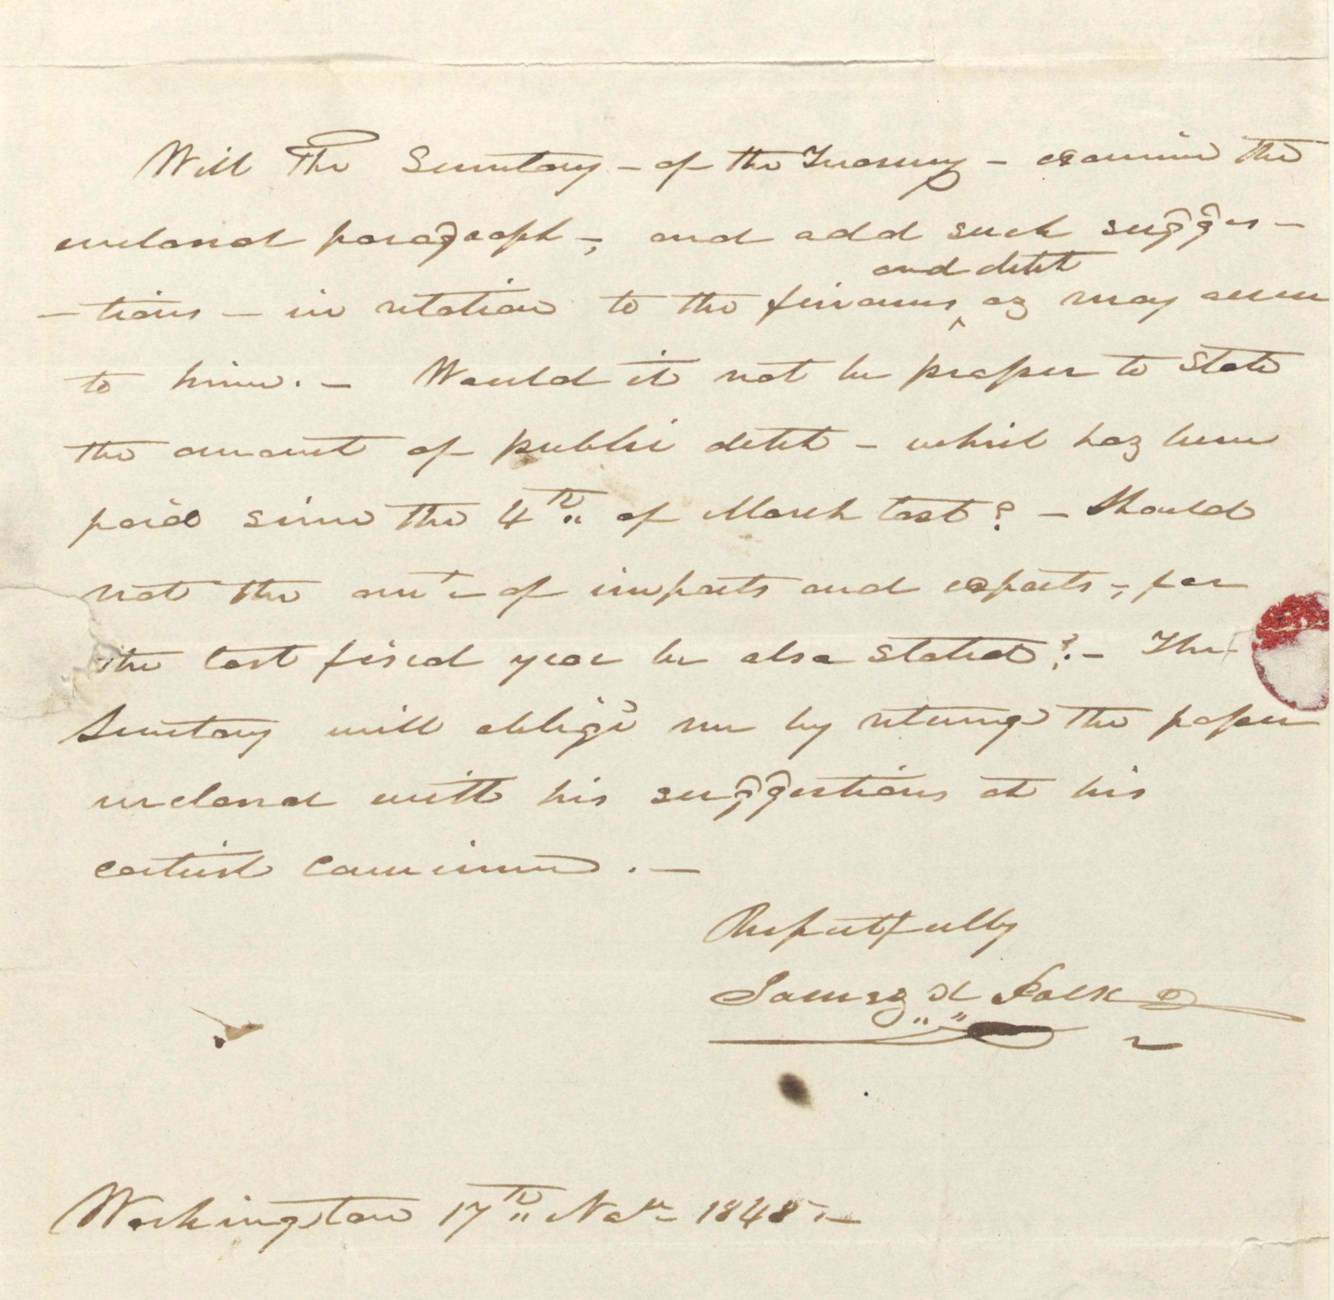 Will The Secretary - of the Treasury - examine the
enclosed paragraph -, and add such sugges-
and debt
-tions - in relation to the finances ^ as may occur
to him. - Would it not be proper to state
the amount of public debt - which has been
paid since the 4th of March last? - Should
not the am't of imports and exports -, for
the last fiscal year be also stated? - The
Secretary will oblige me by returning the paper
enclosed with his suggestions at his
earliest convenience. -
Respectfully
James K Polk
Washington 17th Nov. 1848. -